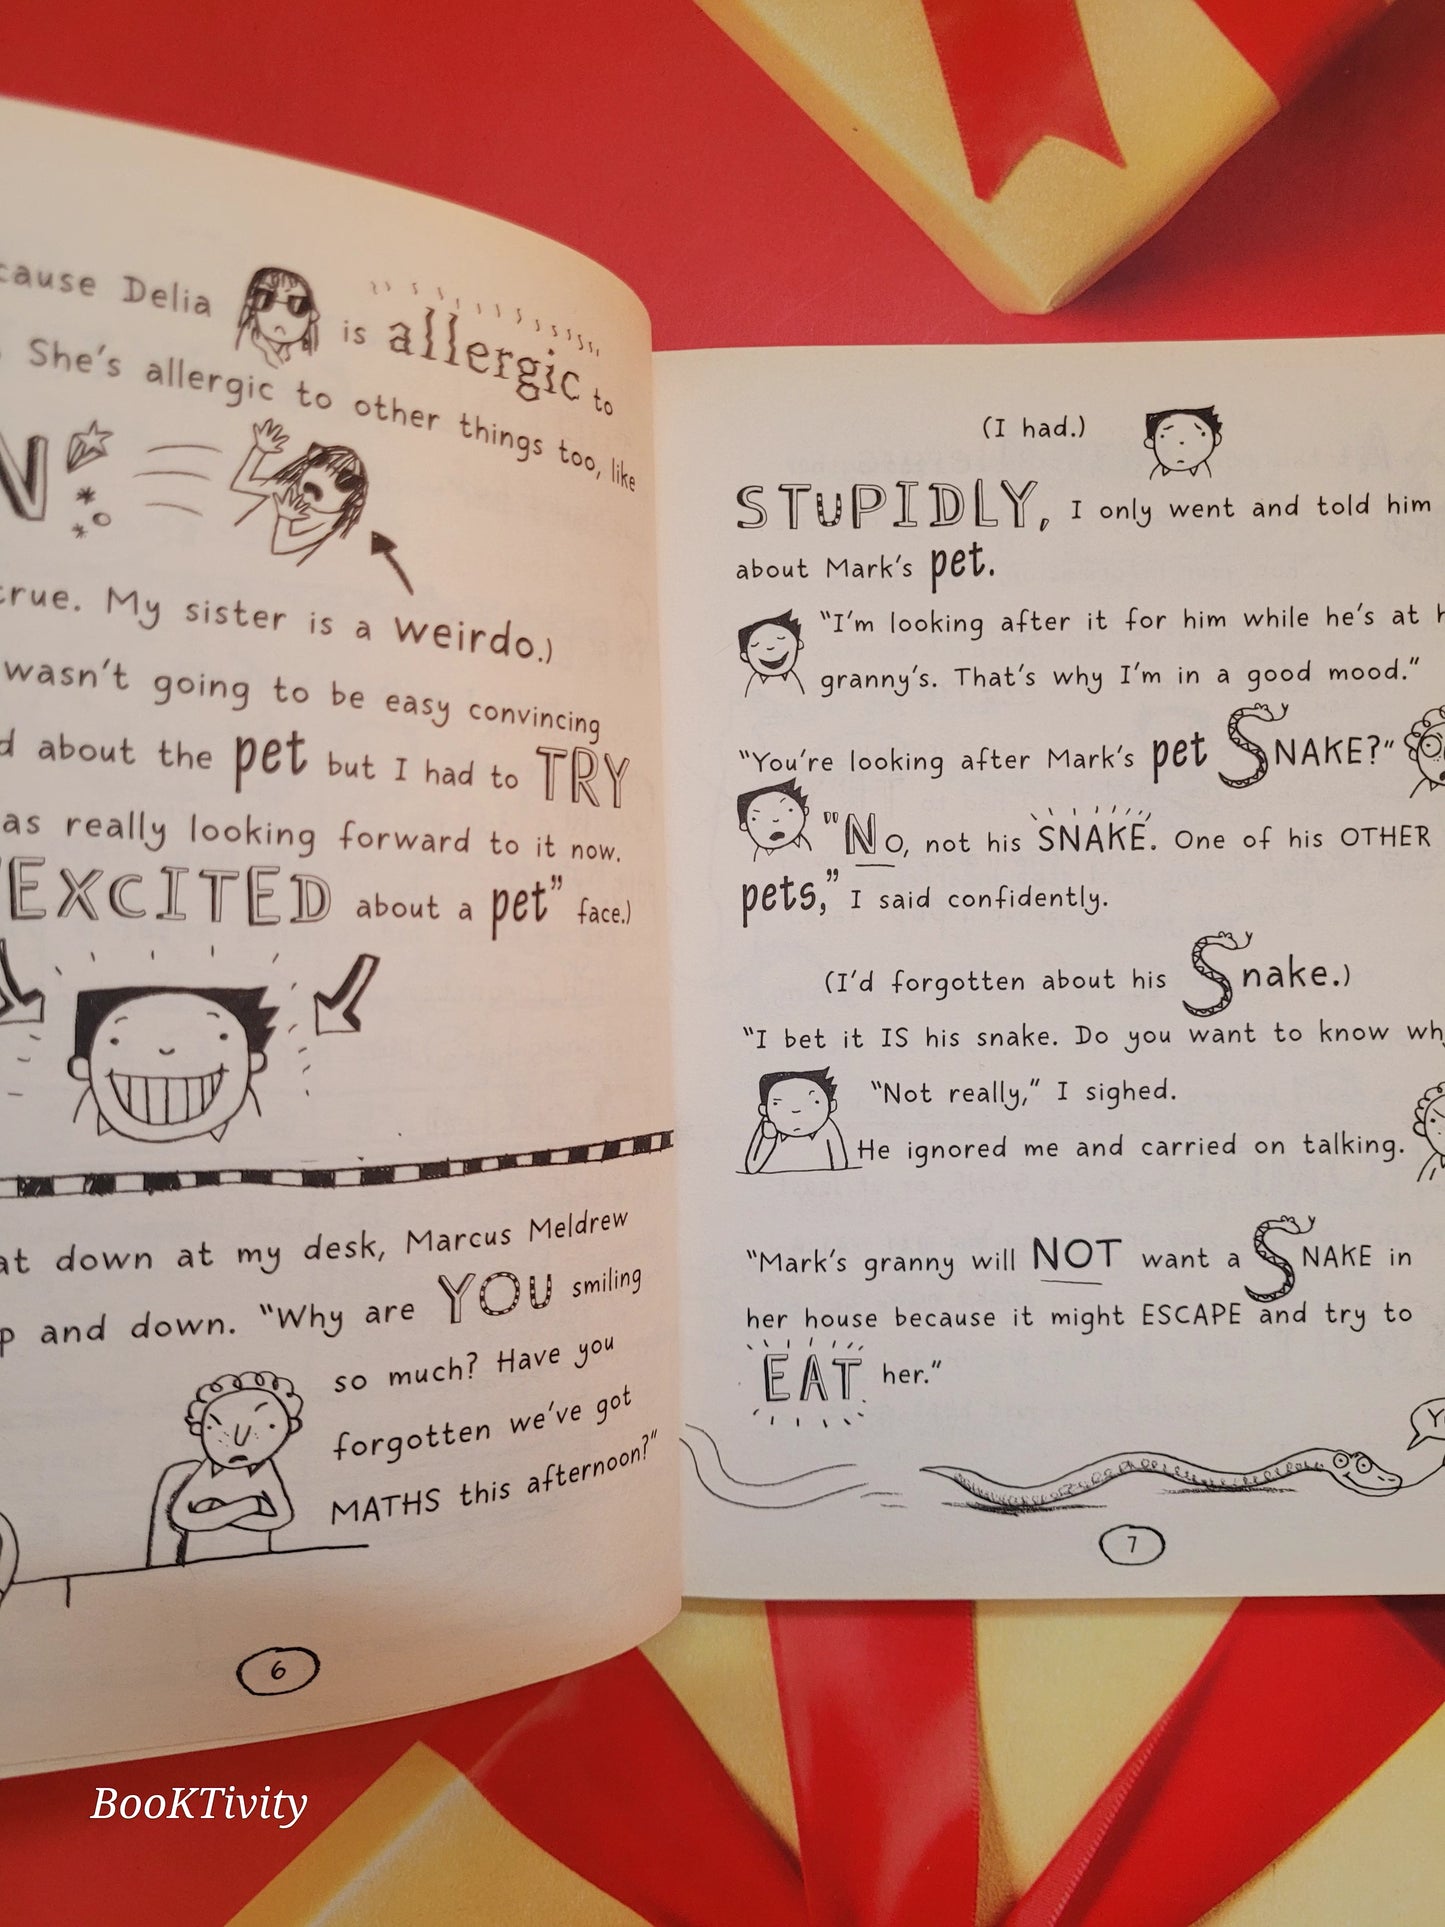 Delia is allergic to
She's allergic to other things too, like
true. My sister is a weirdo.)
wasn't going to be easy convincing
about the pet but I had to TRY
really looking forward to it now.
EXCITED about a pet" face.)
down at my desk, Marcus Meldrew
and down. "Why are YOU smiling
so much? Have you
forgotten we've got
MATHS this afternoon?"
6
(I had.)
STUPIDLY, I only went and told him
about Mark's pet.
"I'm looking after it for him while he's at
granny's. That's why I'm in a good mood."
"You're looking after Mark's pet SNAKE?"
"No, not his SNAKE. One of his OTHER
pets," I said confidently.
(I'd forgotten about his Snake.)
"I bet it IS his snake. Do you want to know
"Not really," I sighed.
He ignored me and carried on talking.
"Mark's granny will NOT want a SNAKE in
her house because it might ESCAPE and try to
EAT her."
7
BooKTivity